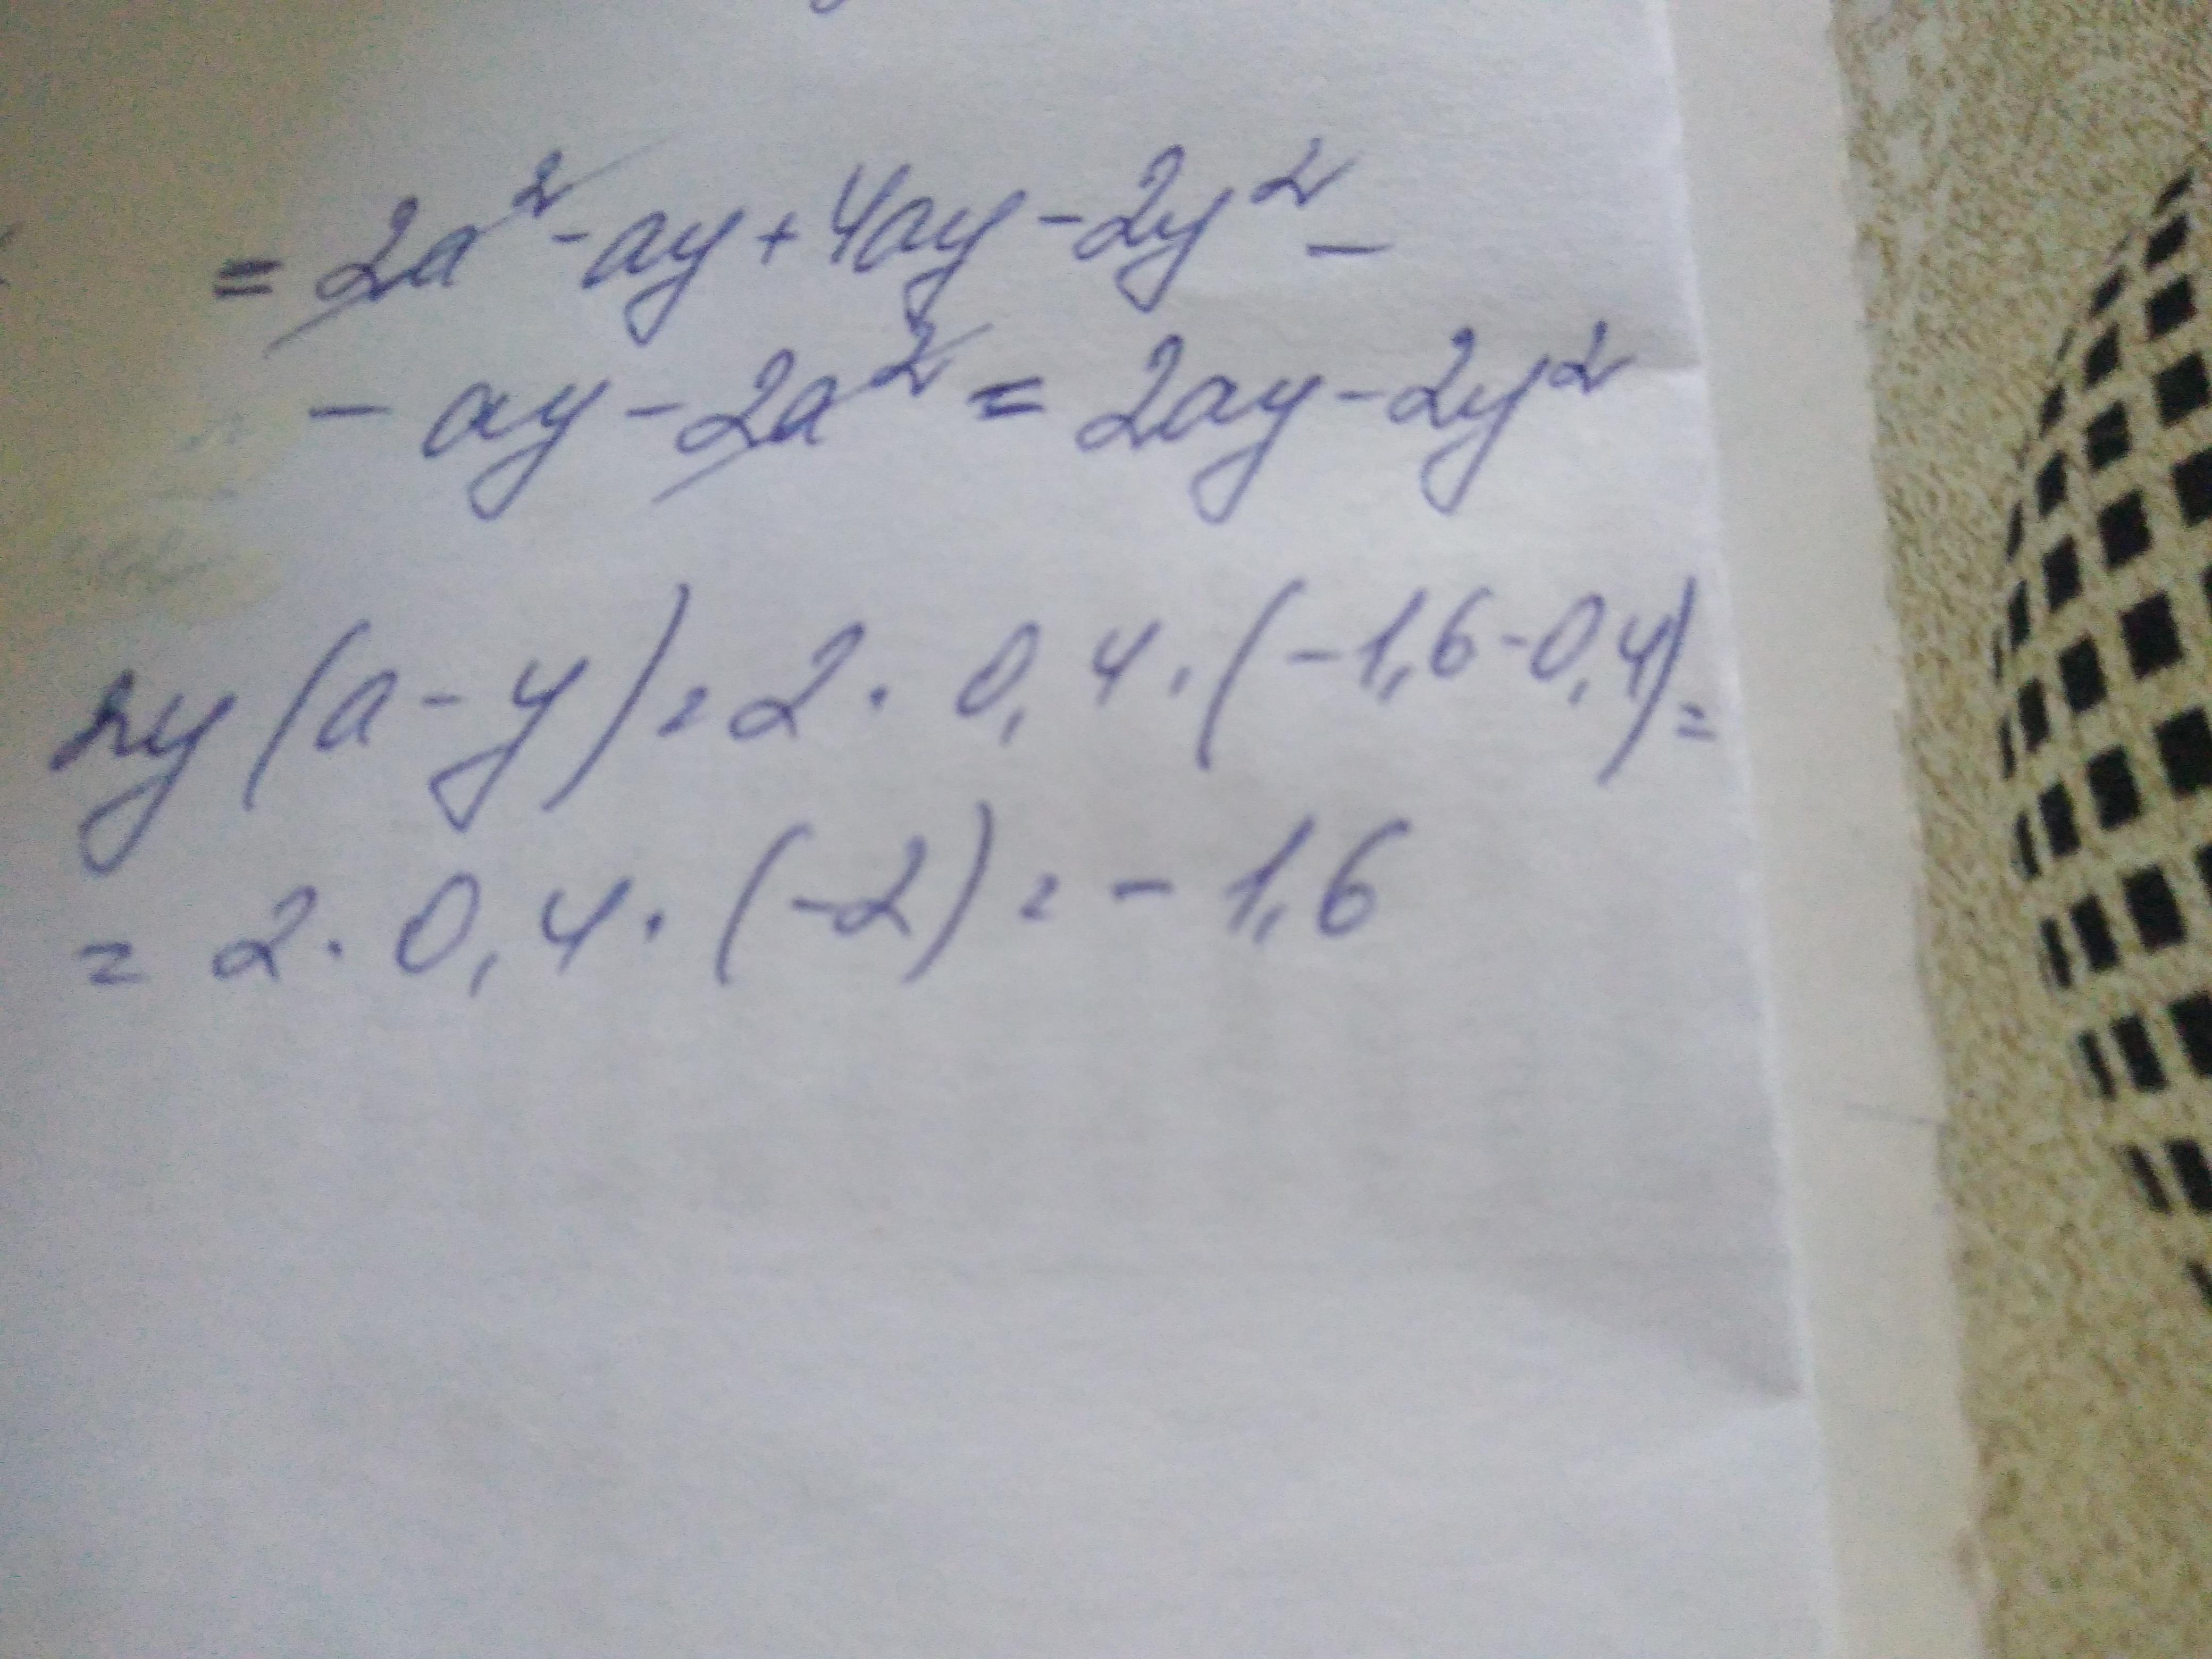 = 2a² - ay + 4ay - 2y² -
- ay - 2a² = 2ay - 2y²
2y(a - y) = 2 · 0,4 · (-1,6 - 0,4) =
= 2 · 0,4 · (-2) = - 1,6